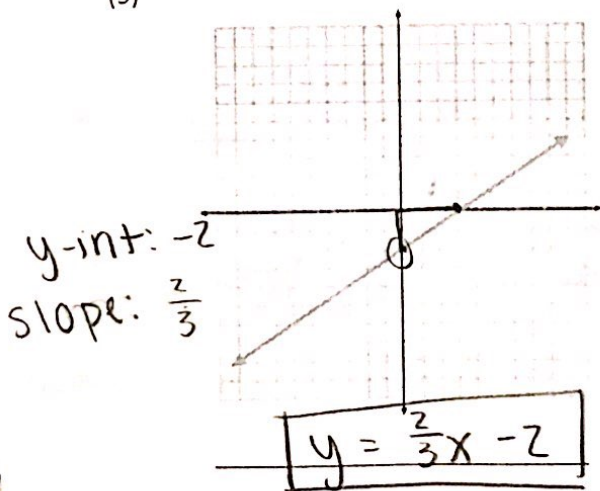 y-int: -2
slope: 2/3
y = 2/3 x - 2